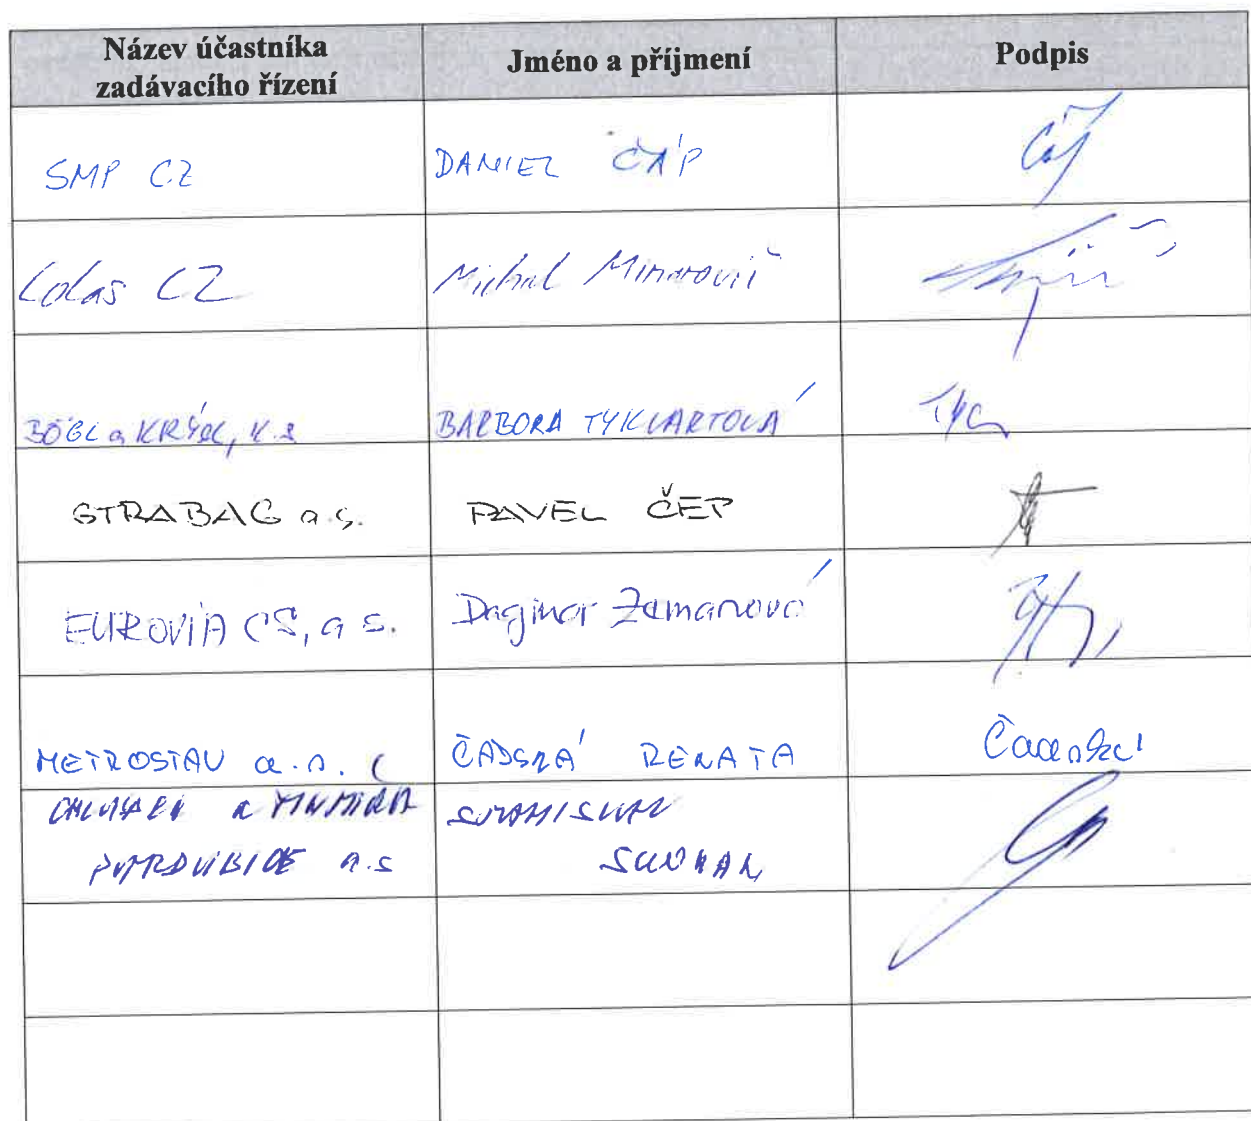 Název účastníka
zadávacího řízení
Jméno a příjmení
Podpis
SMP CZ
DANIEL ČÁP
Colas CZ
Michal Minarovič
BÖGL a KRÝSL, k.s
BARBORA TYKVARTOVÁ
STRABAG a.s.
PAVEL ČEP
EUROVIA CS, a.s.
Dagmar Zemanová
METROSTAV a.s.
ČADSKÁ RENATA
Čadská
a
PARDUBICE a.s
STANISLAV